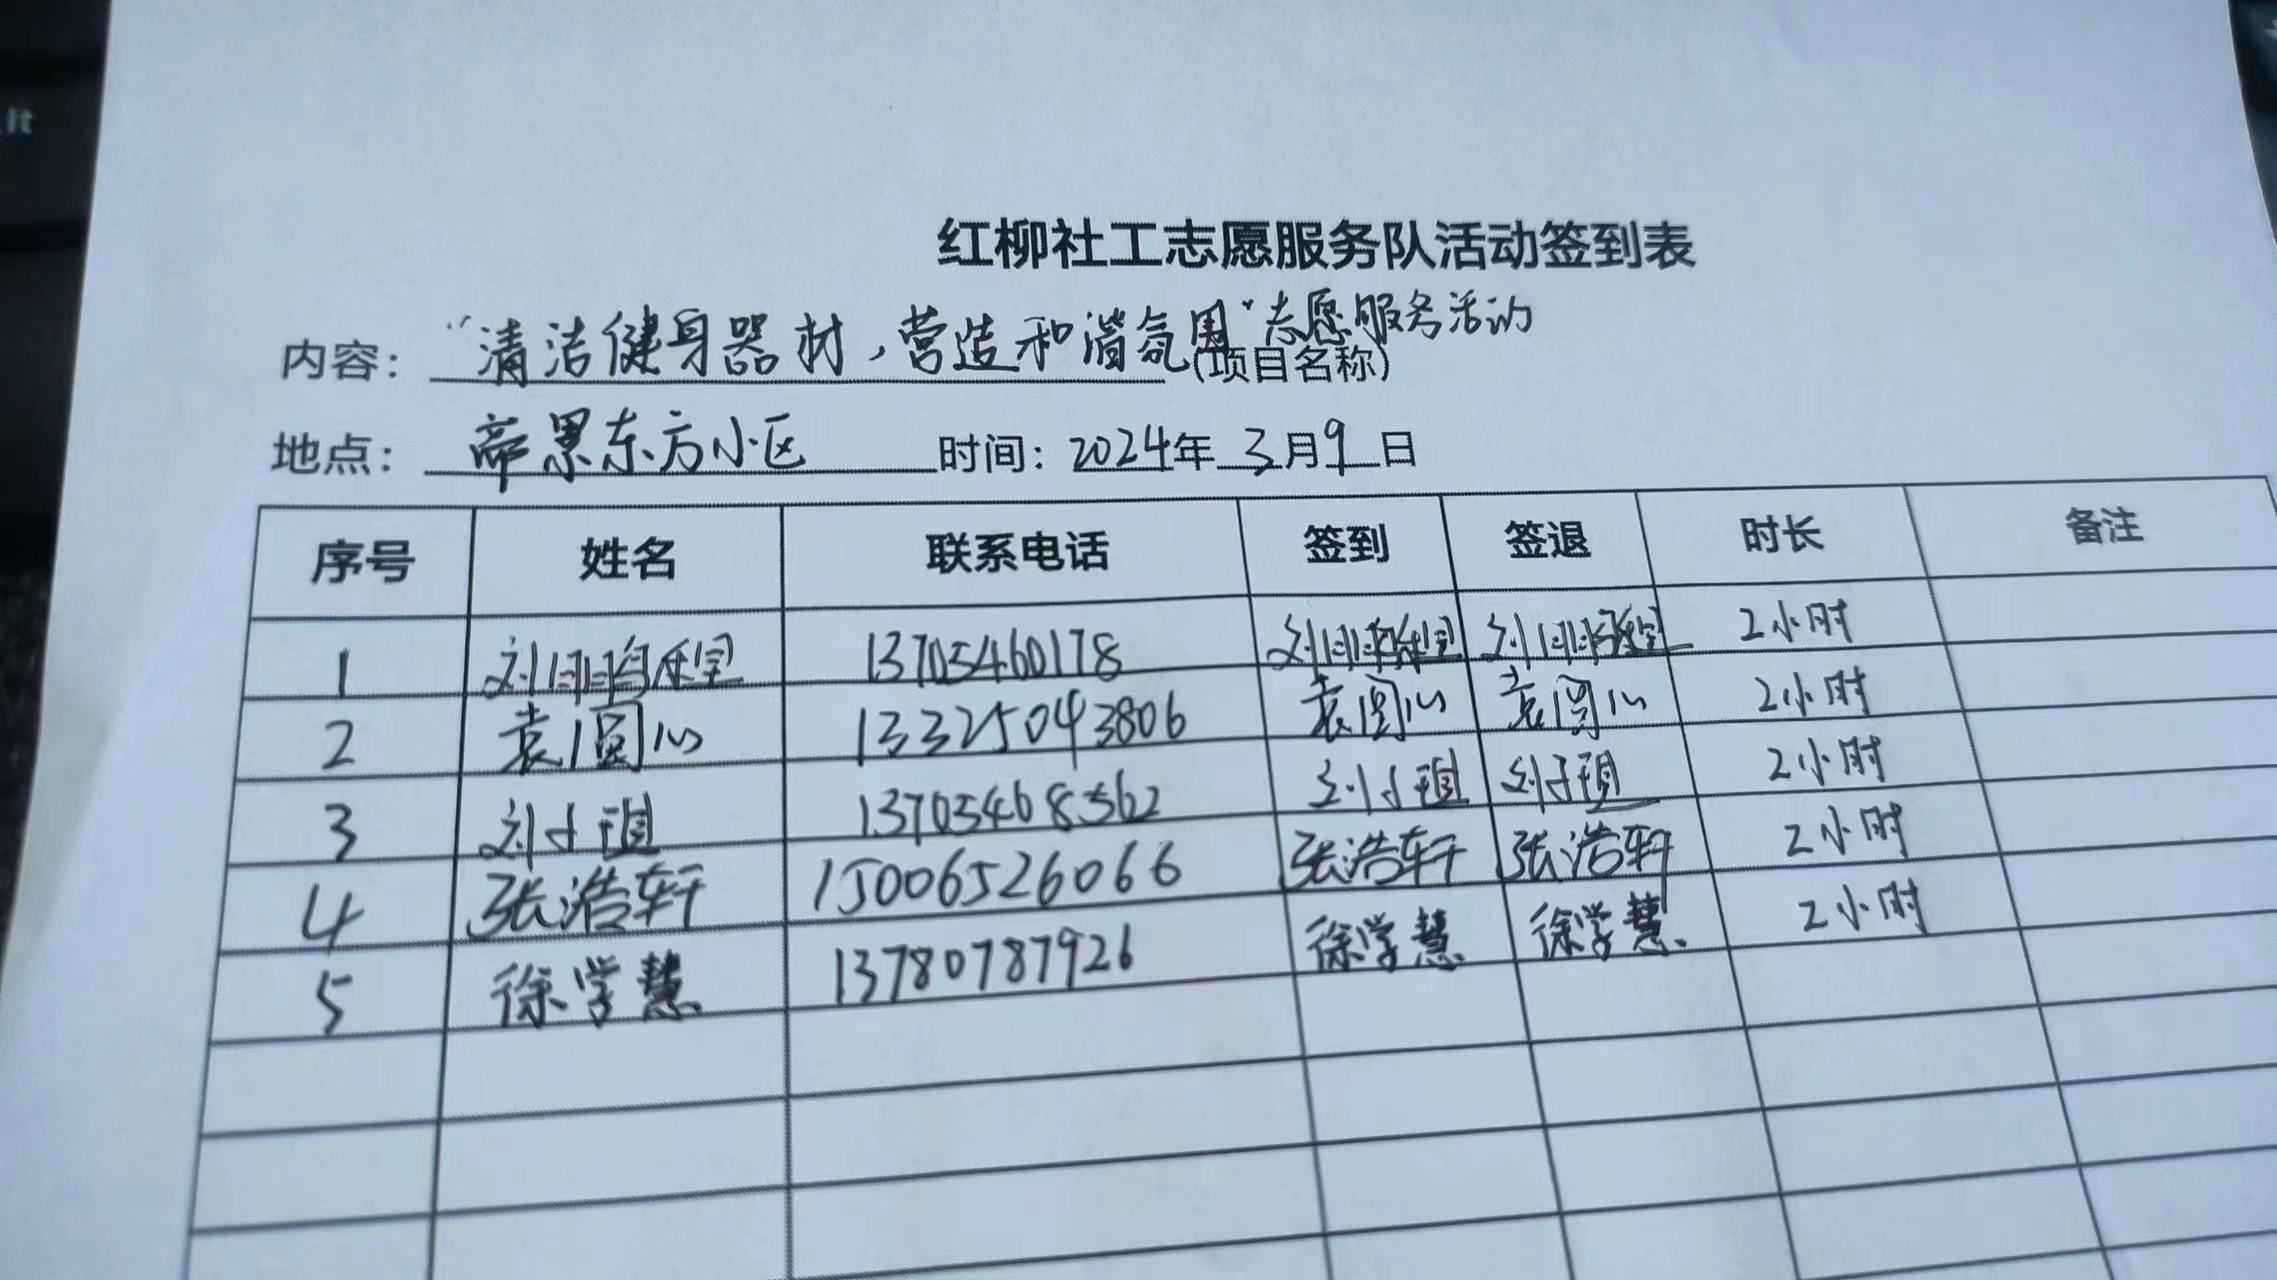 lt
红柳社工志愿服务队活动签到表
内容：“清洁健身器材，营造和谐氛围”志愿服务活动(项目名称)
地点：帝景东方小区 时间：2024年3月9日
序号 姓名 联系电话 签到 签退 时长 备注
1 刘 13705460178 刘 刘 2小时
2 袁圆心 13325043806 袁圆心 袁圆心 2小时
3 刘子瑄 13705468362 刘子瑄 刘子瑄 2小时
4 张浩轩 15006526066 张浩轩 张浩轩 2小时
5 徐学慧 13780787926 徐学慧 徐学慧 2小时